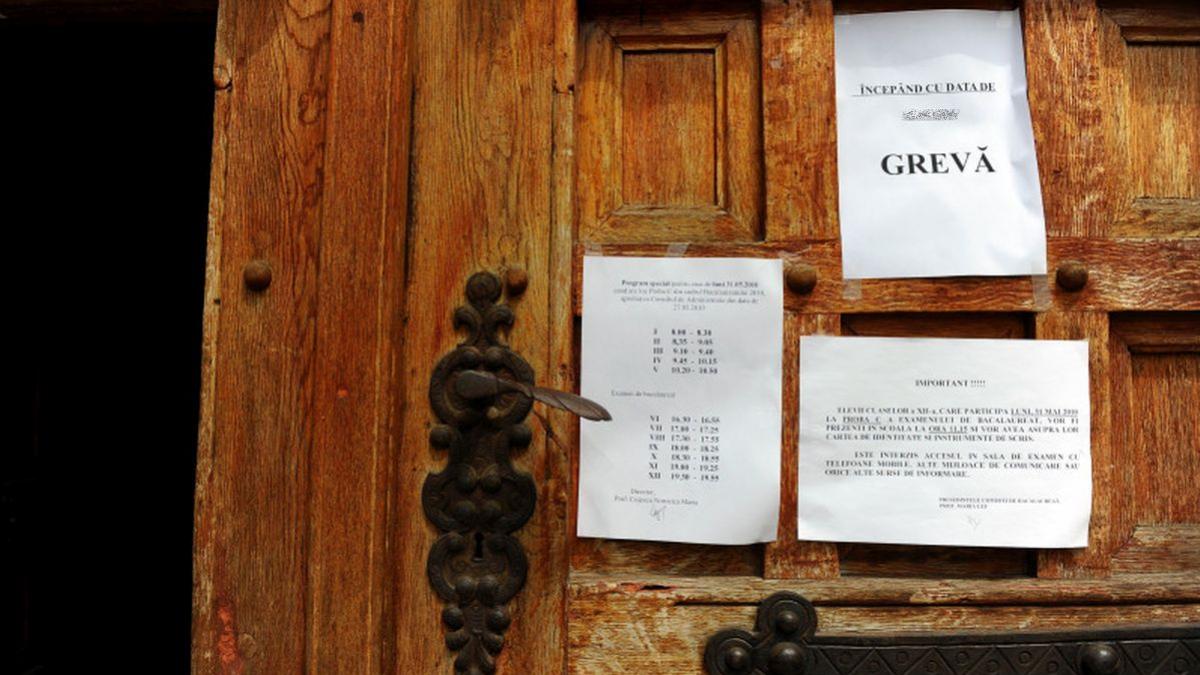 ÎNCEPÂND CU DATA DE
GREVĂ
Program special pentru ziua de luni 31.05.2010
aprobat în Consiliul de Administratie din data de
I 8.00 - 8.30
II 8,35 - 9.05
III 9.10 - 9.40
IV 9.45 - 10.15
V 10.20 - 10.50
Examen de bacalaureat
VI 16.30 - 16.55
VII 17.00 - 17.25
VIII 17.30 - 17.55
IX 18.00 - 18.25
X 18.30 - 18.55
XI 19.00 - 19.25
XII 19.30 - 19.55
Director,
Prof.
IMPORTANT !!!!!
ELEVII CLASELOR a XII-a, CARE PARTICIPA LUNI, 31 MAI 2010
LA PROBA C A EXAMENULUI DE BACALAUREAT, VOR FI
PREZENTI IN SCOALA LA ORA 11.15 SI VOR AVEA ASUPRA LOR
CARTEA DE IDENTITATE SI INSTRUMENTE DE SCRIS.
ESTE INTERZIS ACCESUL IN SALA DE EXAMEN CU
TELEFOANE MOBILE, ALTE MIJLOACE DE COMUNICARE SAU
ORICE ALTE SURSE DE INFORMARE.
PROF.